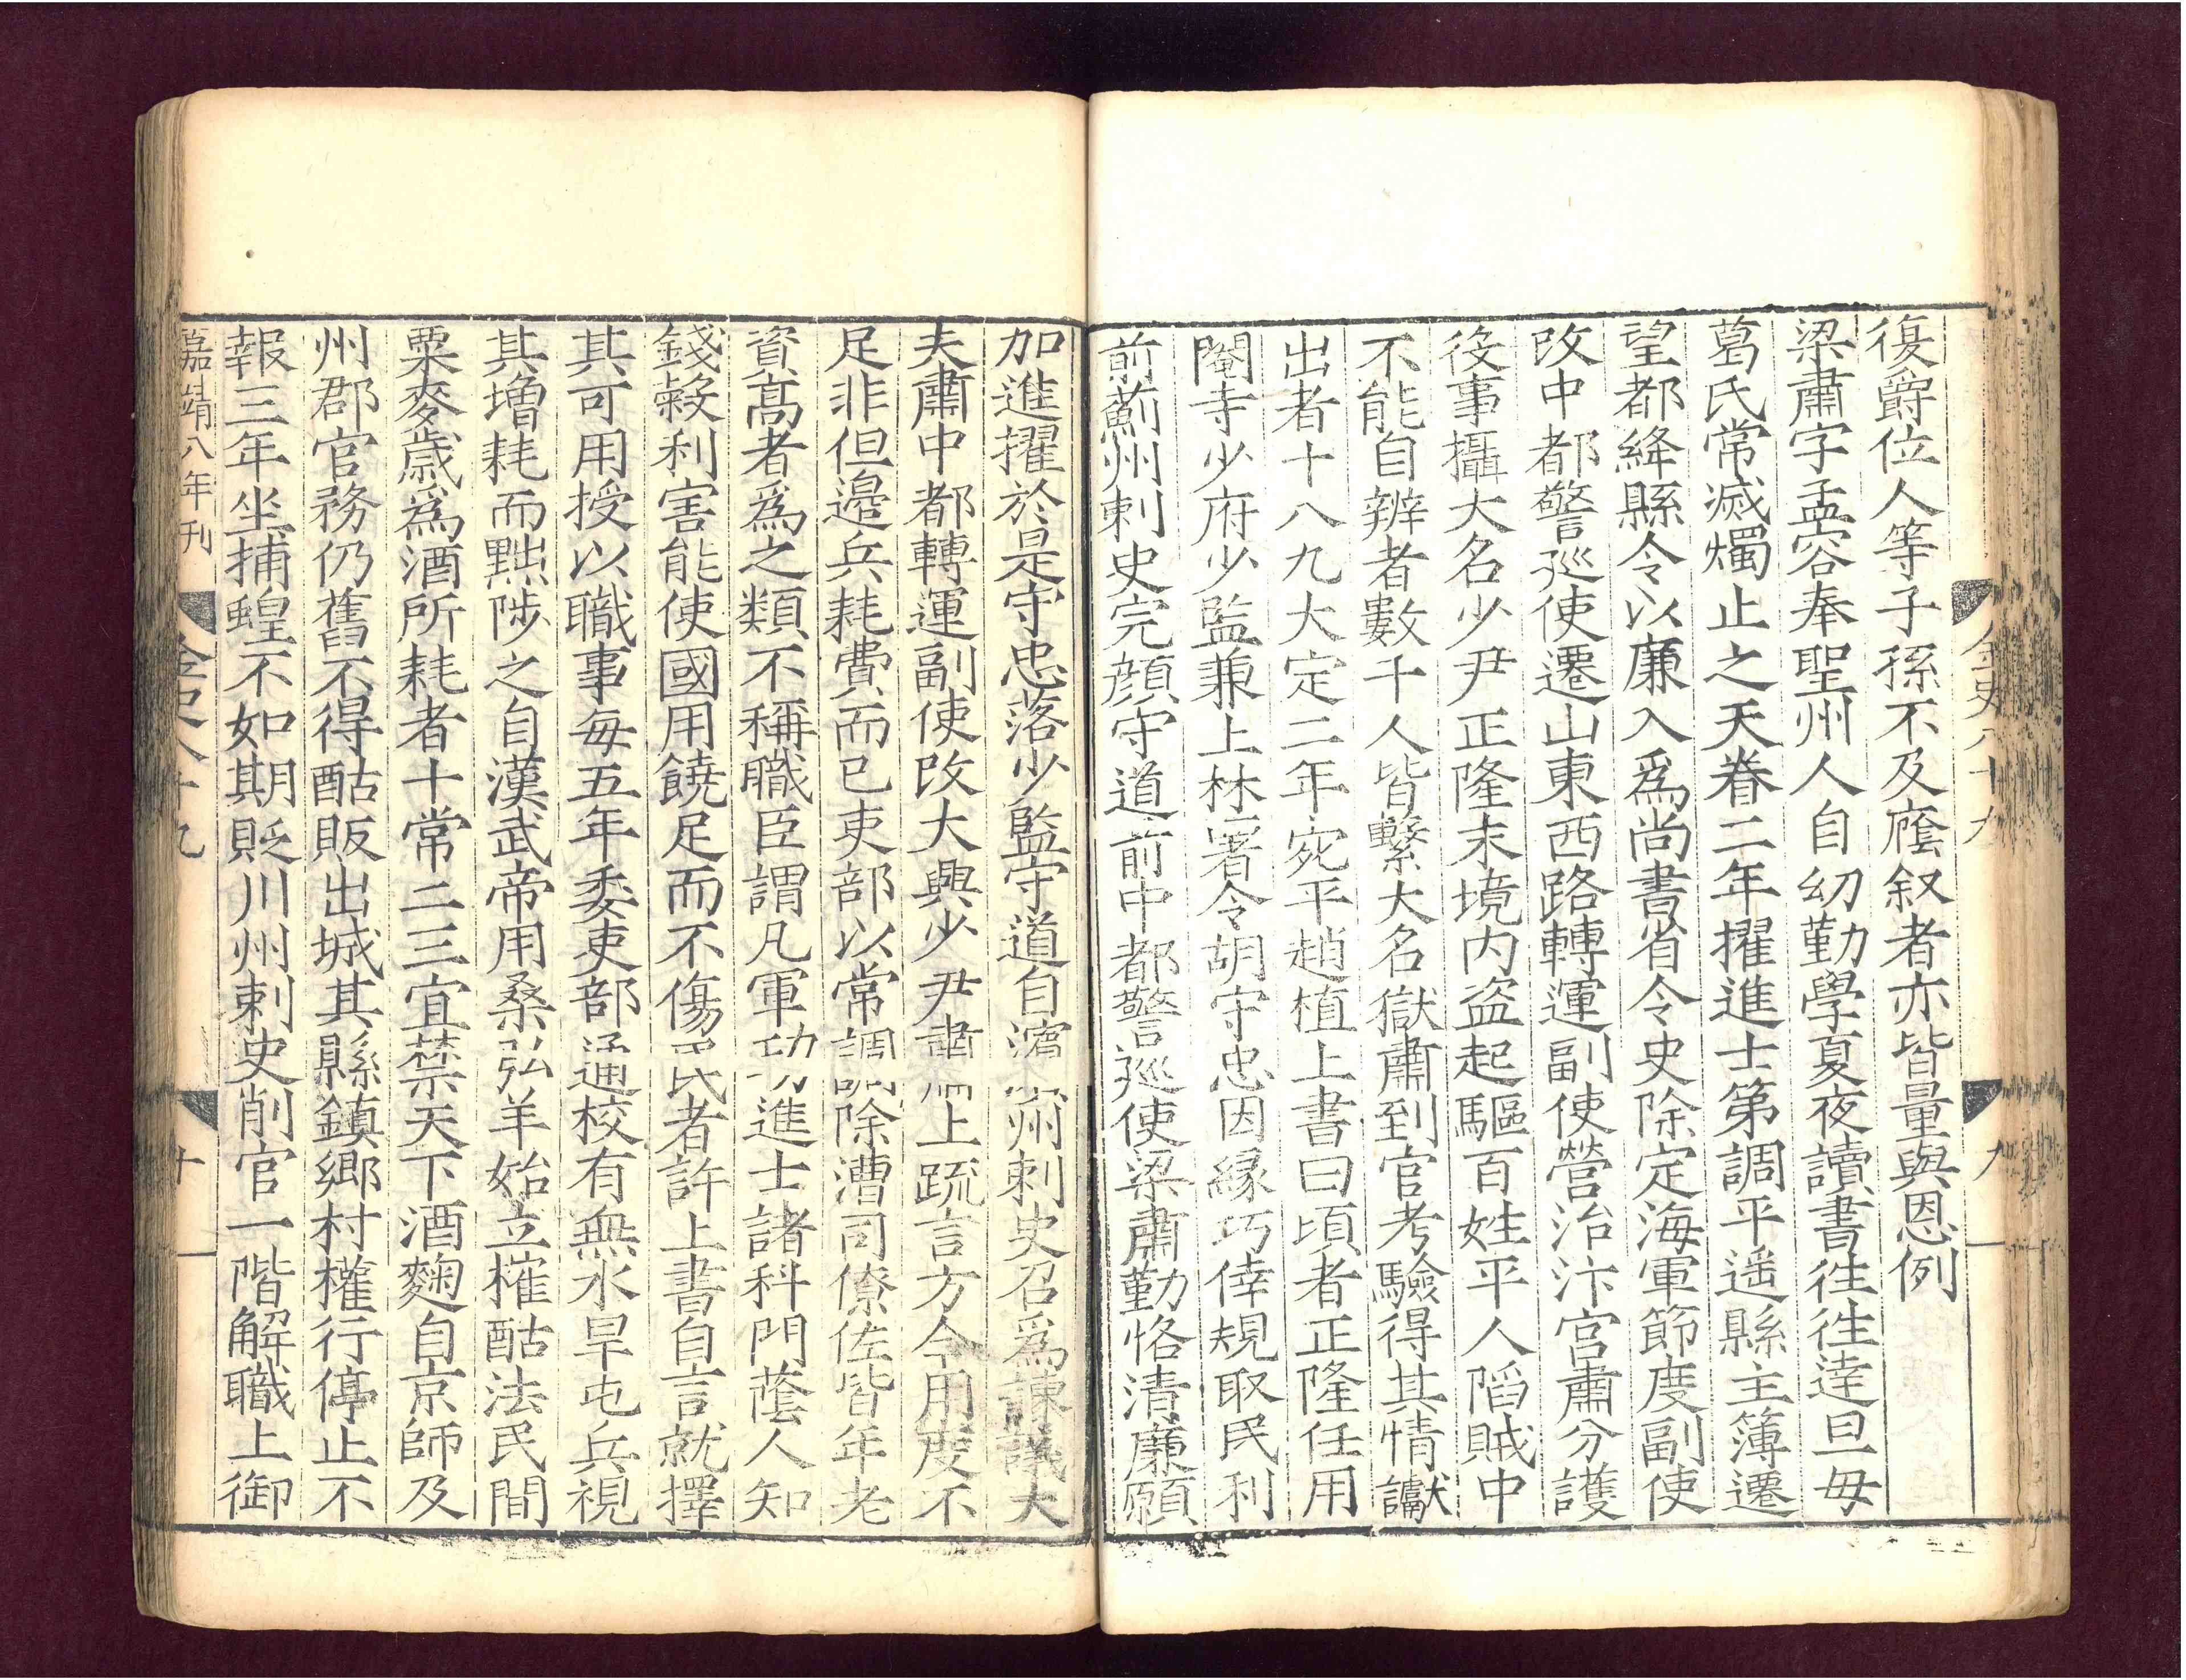 金史八十九
九
復爵位人等子孫不及廕敘者亦皆量與恩例
梁肅字孟容奉聖州人自幼勤學夏夜讀書徃徃達旦毋
葛氏常滅燭止之天眷二年擢進士第調平遥縣主簿遷
望都絳縣令以廉入爲尚書省令史除定海軍節度副使
改中都警廵使遷山東西路轉運副使營治汴宫肅分護
役事攝大名少尹正隆末境内盗起驅百姓平人陷賊中
不能自辨者數千人皆繫大名獄肅到官考驗得其情讞
出者十八九大定二年宛平趙植上書曰頃者正隆任用
閹寺少府少監兼上林署令胡守忠因緣巧倖規取民利
前薊州刺史完顔守道前中都警廵使梁肅勤恪清廉願
加進擢於是守忠落少監守道自濱州刺史召爲諫議大
夫肅中都轉運副使改大興少尹肅上疏言方今用度不
足非但邉兵耗費而已吏部以常調除漕司僚佐皆年老
資髙者爲之類不稱職臣謂凡軍功進士諸科門蔭人知
錢穀利害能使國用饒足而不傷民者許上書自言就擇
其可用授以職事每五年委吏部通校有無水旱屯兵視
其增耗而黜陟之自漢武帝用桑弘羊始立榷酤法民間
粟麥歲爲酒所耗者十常二三宜禁天下酒麴自京師及
州郡官務仍舊不得酤販出城其縣鎮鄉村權行停止不
報三年坐捕蝗不如期貶川州刺史削官一階解職上御
嘉靖八年刊
金史八十九
十